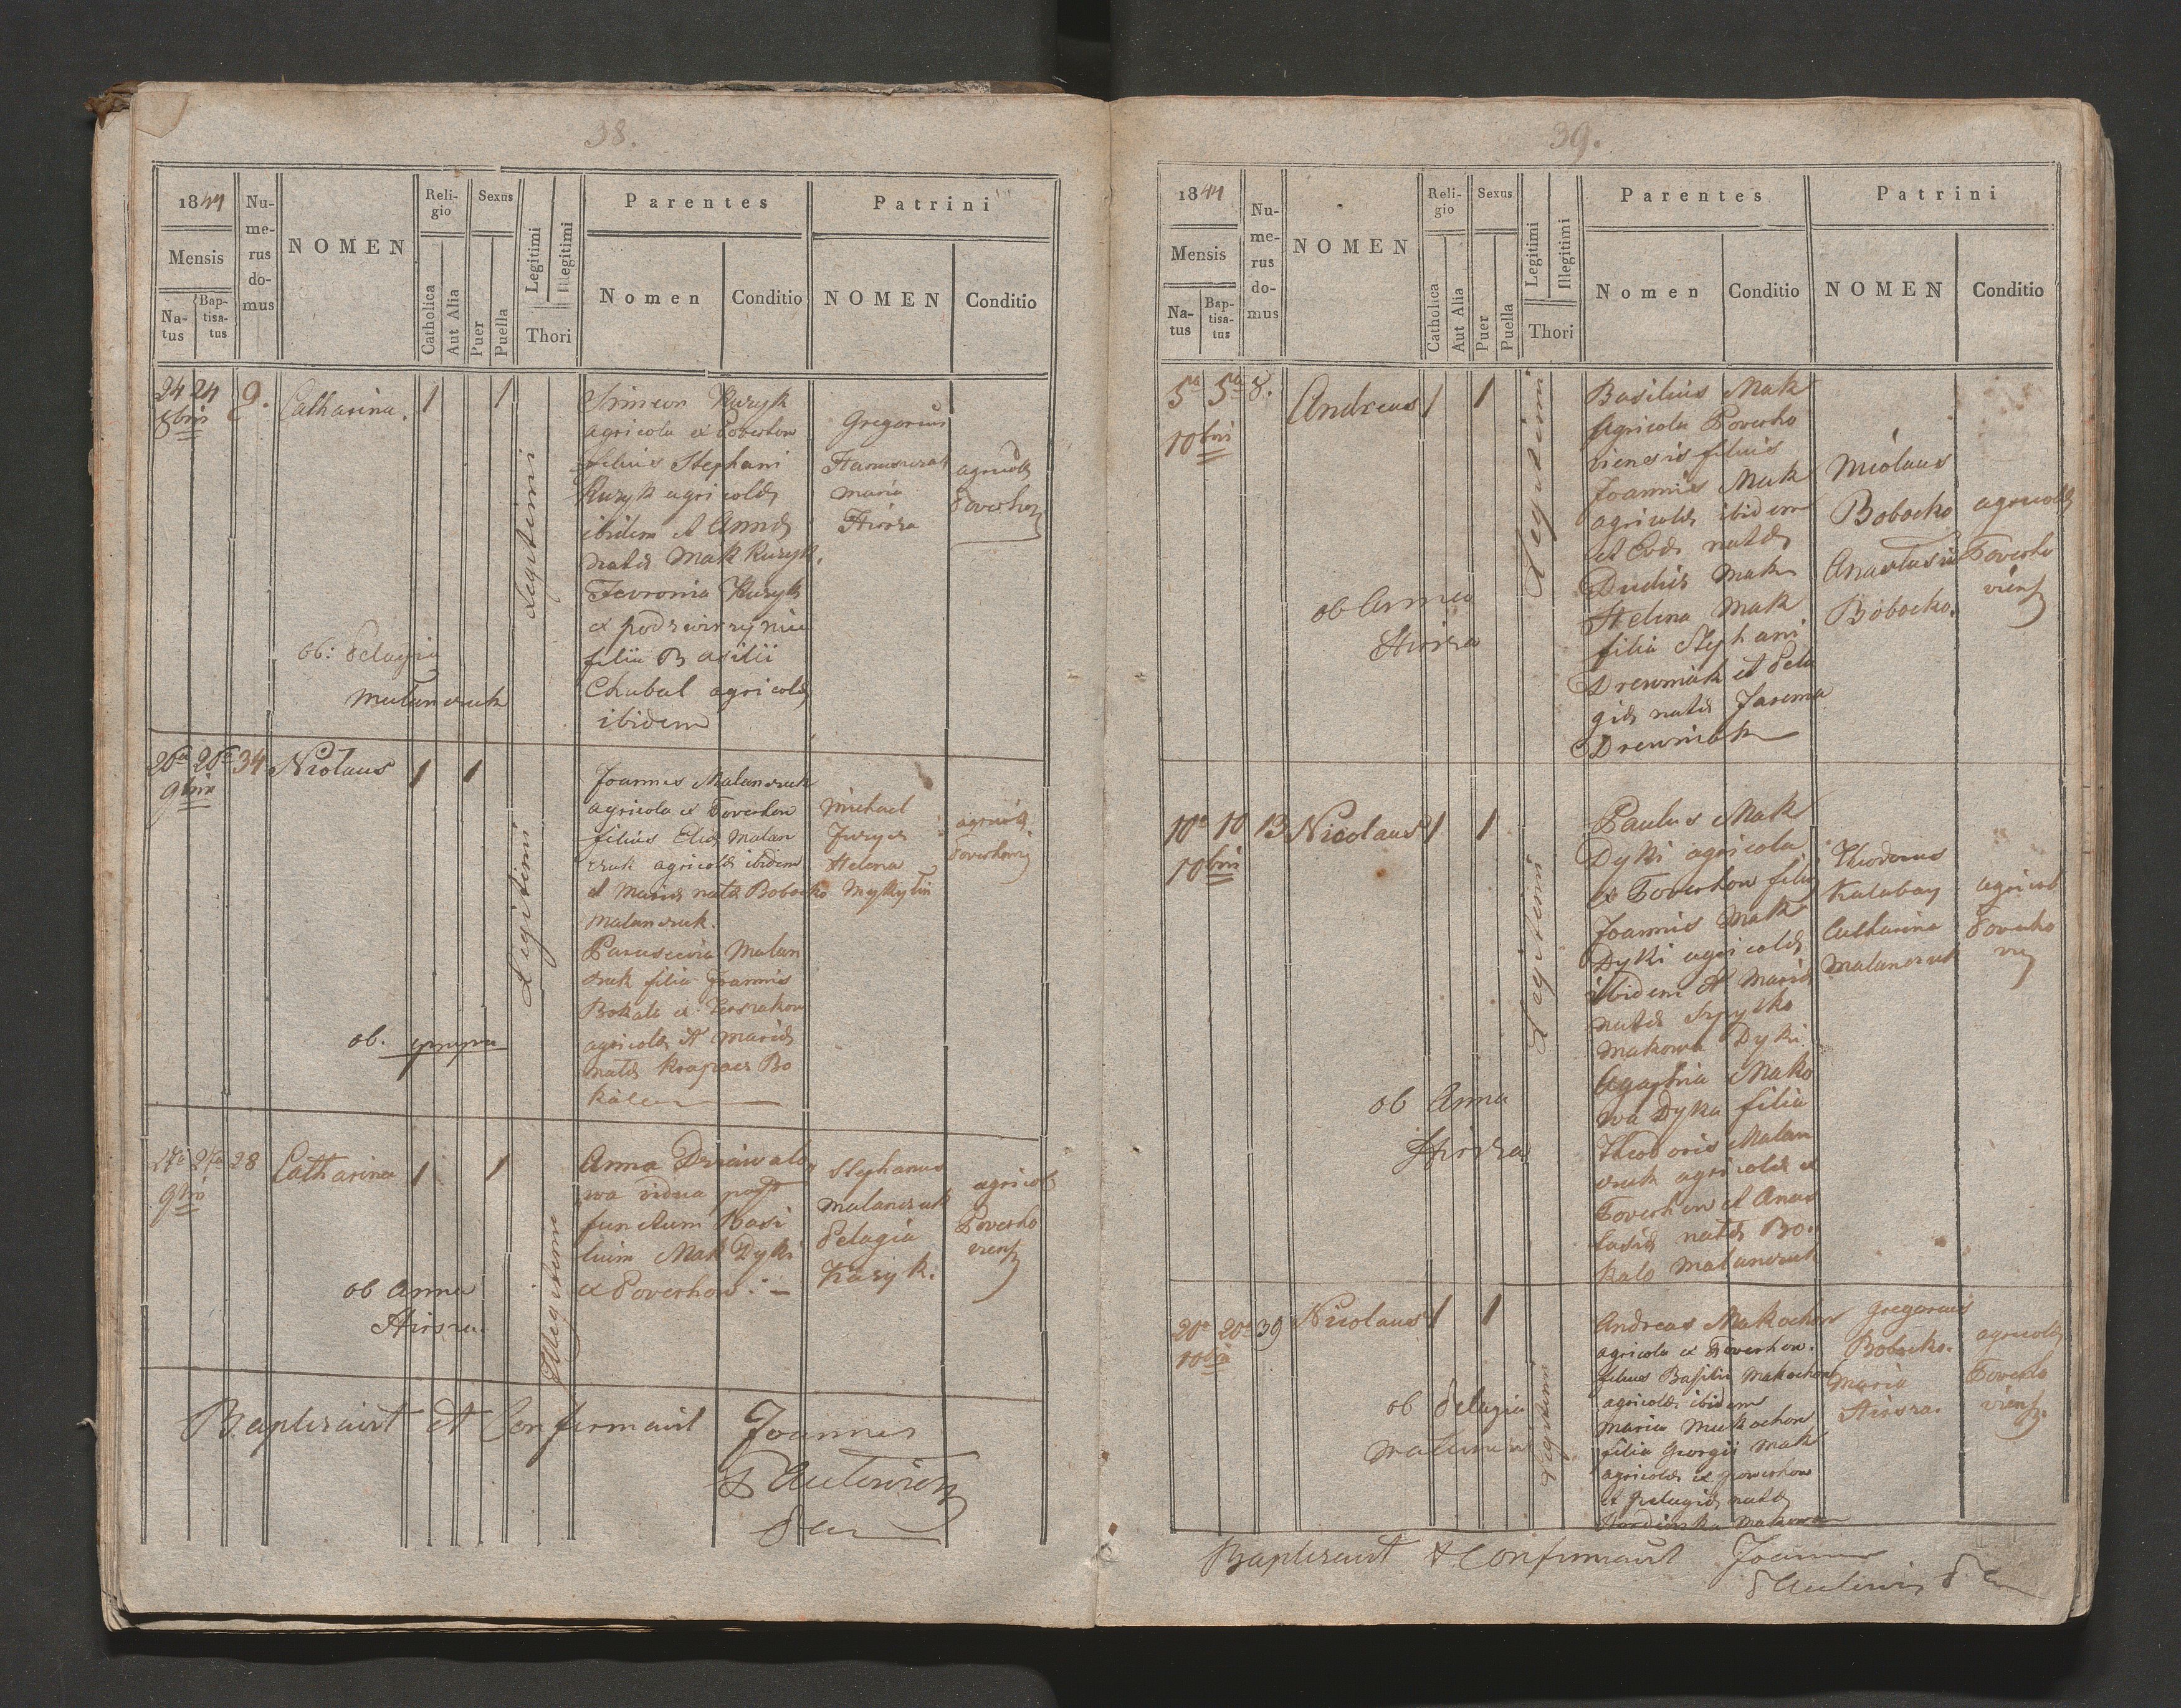 38.
1844
Mensis
Na-
tus
Bap-
tisa-
tus
Nu-
me-
rus
do-
mus
NOMEN
Reli-
gio
Catholica
Aut Alia
Sexus
Puer
Puella
Legitimi
Illegitimi
Thori
Parentes
Nomen
Conditio
Patrini
NOMEN
Conditio
24 24 9. Catharina. 1 1
8bris
Legitimi
Simeon Kuzyk
agricola ex Poverhow
filius Stephani
Kuzyk agricolæ
ibidem et Annæ
natæ Mak Kuzyk.
Fevronia Kuzyk
ex podzwirzyniec
filia Basilii
Chabal agricolæ
ibidem
Gregorius
maria
Hirsza
agricolæ
Poverhow
ob: Pelagia
Malanczuk
26a 26a 34 Nicolaus 1 1
9bris
Legitimi
Joannes Malanczuk
agricola ex Poverhow
filius Eliæ Malan
czuk agricolæ ibidem
et Mariæ natæ Bobecko
Malanczuk.
Parascevia Malan
czuk filia Joannis
Bokalo ex
agricolæ et Mariæ
natæ Bo
kalo
Michael
Helena
Mykytin
agricolæ
Poverhovien
ob.
27a 27a 28 Catharina 1 1
9bris
Illegitimi
Anna
wa vidua post
functum Basi
lium Mak Dyki
ex Poverhow. —
Stephanus
Malanczuk
Pelagia
Kuzyk.
agricol
Poverho
viens
ob Anna
Hirsza
Baptisavit et Confirmavit Joannes
39.
1844
Mensis
Na-
tus
Bap-
tisa-
tus
Nu-
me-
rus
do-
mus
NOMEN
Reli-
gio
Catholica
Aut Alia
Sexus
Puer
Puella
Legitimi
Illegitimi
Thori
Parentes
Nomen
Conditio
Patrini
NOMEN
Conditio
5ta 5ta 8. Andreas 1 1
10bris
Legitimi
Basilius Mak
Agricola Poverho
viensis filius
Joannis Mak
agricolæ ibidem
et Evæ natæ
Dudus Mak
Helena Mak
filia Stephani
Drewniak et Pela
giæ natæ Jarema
Drewniak
Nicolaus
Bobecko
Anastasia
Bobecko.
agricolæ
Poverho
viens
ob Anna
Hirsza
10a 10 13 Nicolaus 1 1
10bris
Legitimi
Paulus Mak
Dyki agricola
ex Poverhow filius
Joannis Mak
Dyki agricolæ
ibidem et Mariæ
natæ Szpytko
Makowa Dyki.
Agaphia Mako
wa Dyka filia
Theodoris Malan
czuk agricolæ ex
Poverhow et Anas
tasiæ natæ Bo
kalo Malanczuk
Theodorus
Kalabay
Catharina
Malanczuk
agricol
Poverho
vien
ob Anna
Hirsza
20a 20a 39 Nicolaus 1 1
10bris
Legitimi
Andreas Makochon
agricola ex Poverhow.
filius Basilii Makochon
agricolæ ibidem
Maria Makochon
filia Georgii Mak
agricolæ ex Poverhow
et Pelagiæ natæ
Makowa
Gregorius
Bobecko.
Maria
Hirsza.
agricolæ
Poverho
viens.
ob Pelagia
Baptisavit et Confirmavit Joannes